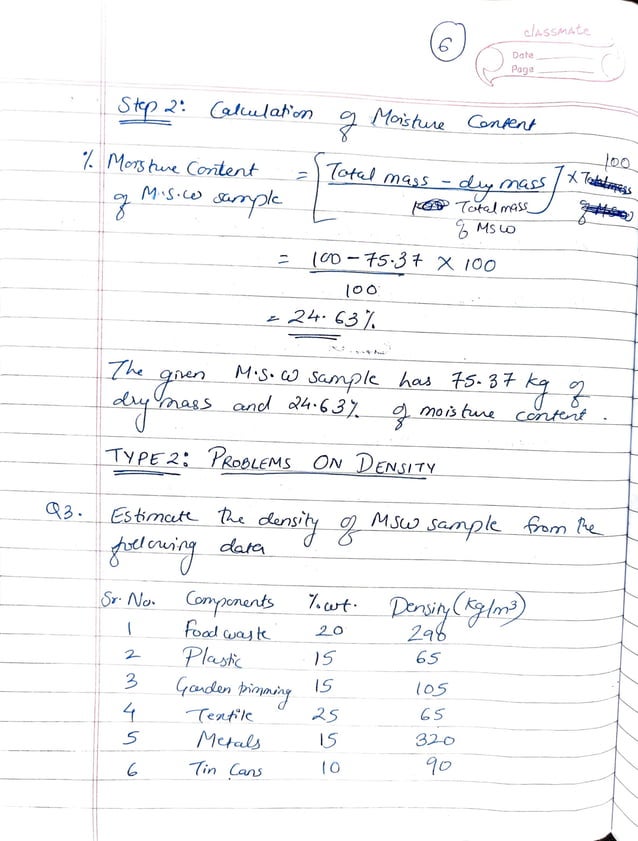 6
classmate
Date
Page
Step 2: Calculation of Moisture Content
% Moisture Content = [Total mass - dry mass / Total mass of MSW] x 100
of M.S.W sample
= 100 - 75.37 x 100
100
= 24.63%
The given M.S.W sample has 75.37 kg of
dry mass and 24.63% of moisture content.
TYPE 2: PROBLEMS ON DENSITY
Q3. Estimate the density of MSW sample from the
following data
Sr. No. Components %.wt. Density (kg/m³)
1 Food waste 20 298
2 Plastic 15 65
3 Garden trimming 15 105
4 Textile 25 65
5 Metals 15 320
6 Tin Cans 10 90